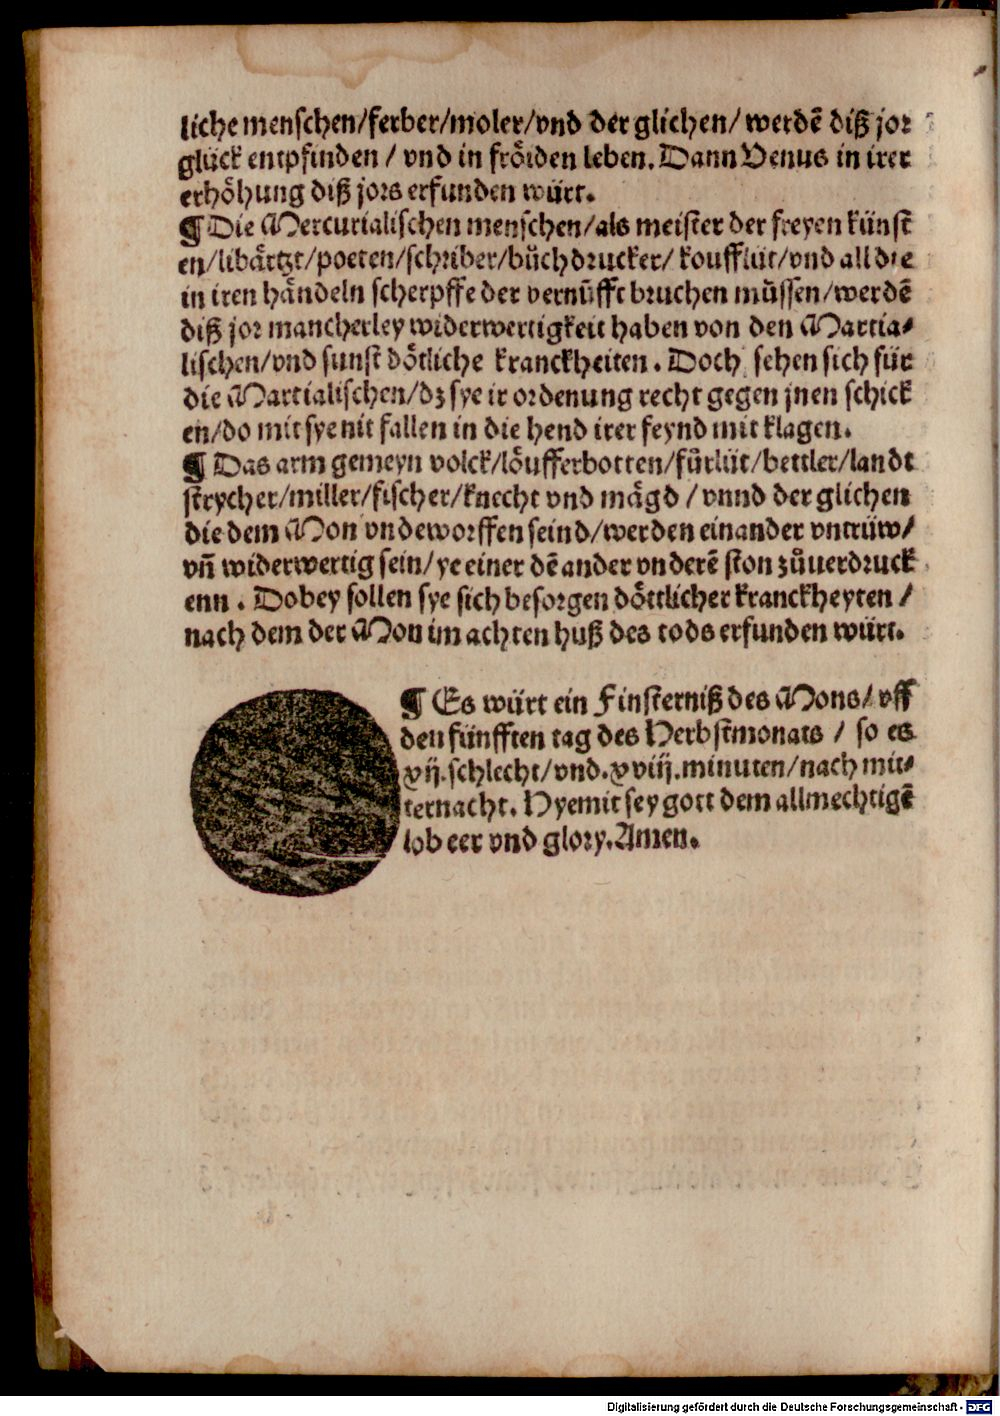 liche menschen/ferber/moler/vnd der glichen/ werdē diß jor
glück entpfinden / vnd in fröiden leben. Dann Venus in irer
erhöhung diß jors erfunden würt.
¶ Die Mercurialischen menschen/als meister der freyen künst
en/libärtzt/poeten/schriber/bůchdrucker/ koufflüt/vnd all die
in iren händeln scherpffe der vernůfft bruchen můssen/werdē
diß jor mancherley widerwertigkeit haben von den Martia-
lischen/vnd sunst dötliche kranckheiten. Doch sehen sich für
die Martialischen/dz sye ir ordenung recht gegen jnen schick
en/do mit sye nit fallen in die hend irer feynd mit klagen.
¶ Das arm gemeyn volck/löufferbotten/fůrlüt/bettler/landt
strycher/miller/fischer/knecht vnd mägd / vnnd der glichen
die dem Mon vndeworffen seind/werden einander vntrüw/
vñ widerwertig sein/ye einer dē ander vnderē ston zůuerdruck
enn. Dobey sollen sye sich besorgen döttlicher kranckheyten /
nach dem der Mon im achten huß des tods erfunden würt.
¶ Es würt ein Finsterniß des Mons/ vff
den fünfften tag des Herbstmonats / so es
xij.schlecht/vnd.xviij.minuten/nach mit-
ternacht. Hyemit sey gott dem allmechtigē
lob eer vnd glory. Amen.
Digitalisierung gefördert durch die Deutsche Forschungsgemeinschaft - DFG